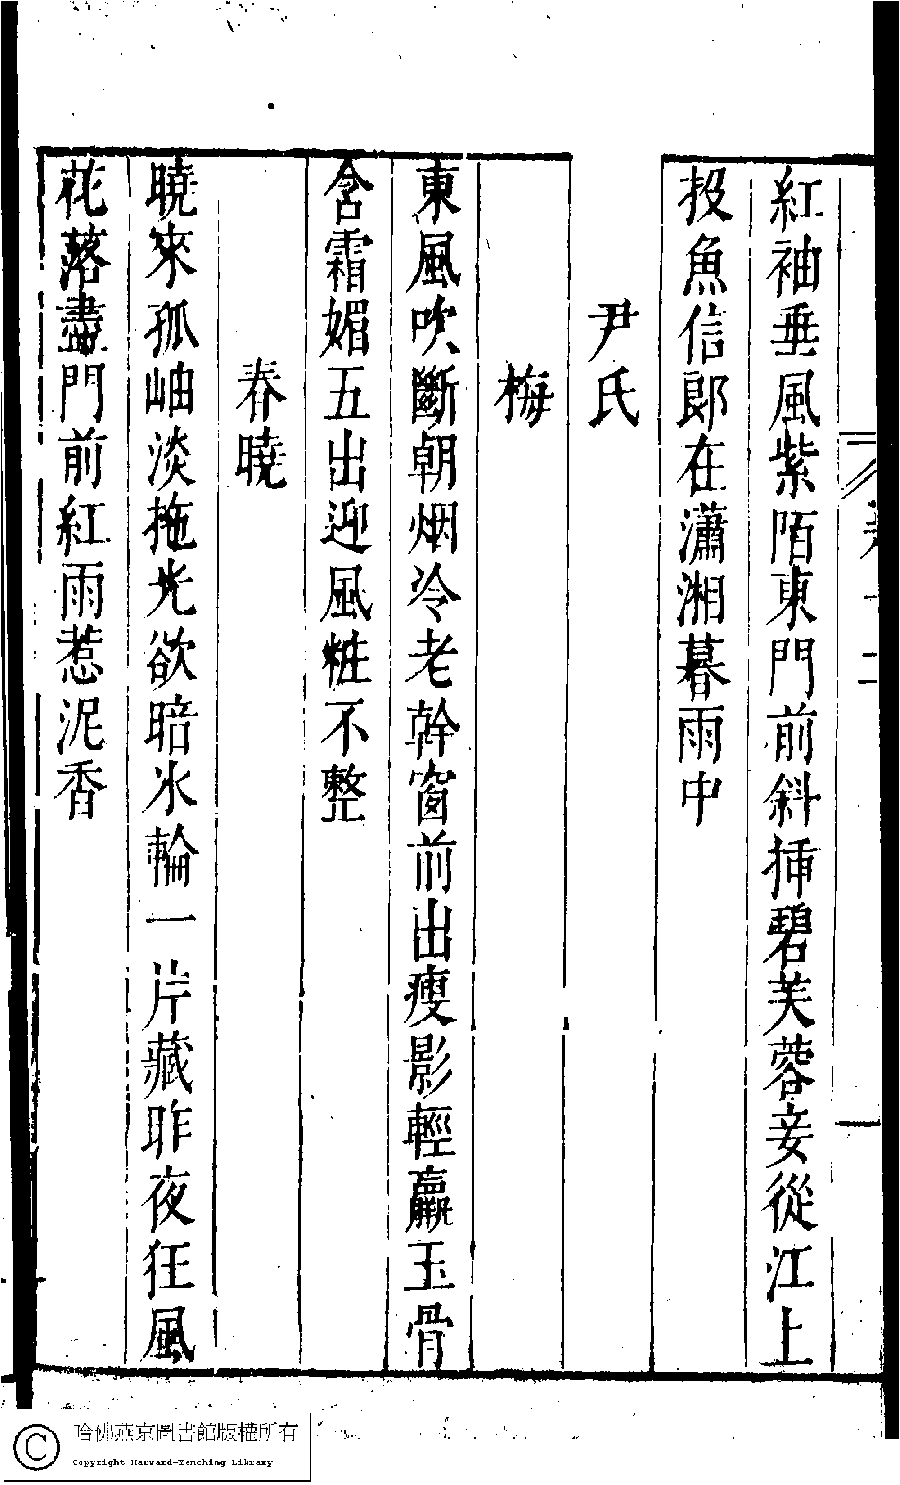 紅袖垂風紫陌東門前斜揷碧芙蓉妾從江上
投魚信郎在瀟湘暮雨中
尹氏
梅
東風吹斷朝烟冷老幹窗前出瘦影輕羸玉骨
含霜媚五出迎風粧不整
春曉
曉來孤岫淡拖光欲暗氷輪一片藏昨夜狂風
花落盡門前紅雨惹泥香
哈佛燕京圖書館版權所有
Copyright Harvard-Yenching Library